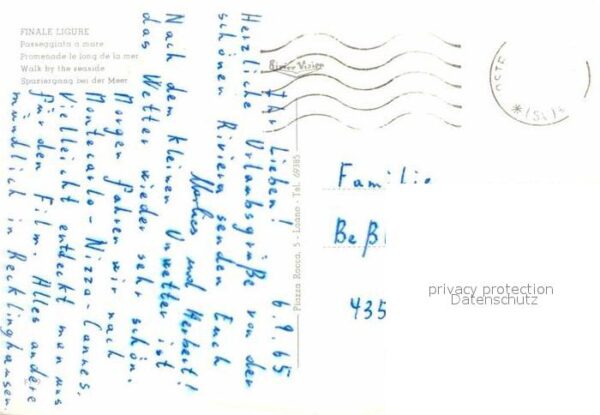 FINALE LIGURE
Passeggiata a mare
Promenade le long de la mer
Walk by the seaside
Spaziergang bei der Meer
6.9.65
Ihr Lieben!
Herzliche Urlaubsgrüße von der
schönen Riviera senden Euch
und Herbert!
Nach dem kleinen Unwetter ist
das Wetter wieder sehr schön.
Morgen fahren wir nach
Montecarlo - Nizza - Cannes.
Vielleicht entdeckt man uns
für den Film. Alles andere
mündlich in Recklinghausen
Piazza Rocca, 5 - Loano - Tel. 69385
Familie
435
privacy protection
Datenschutz